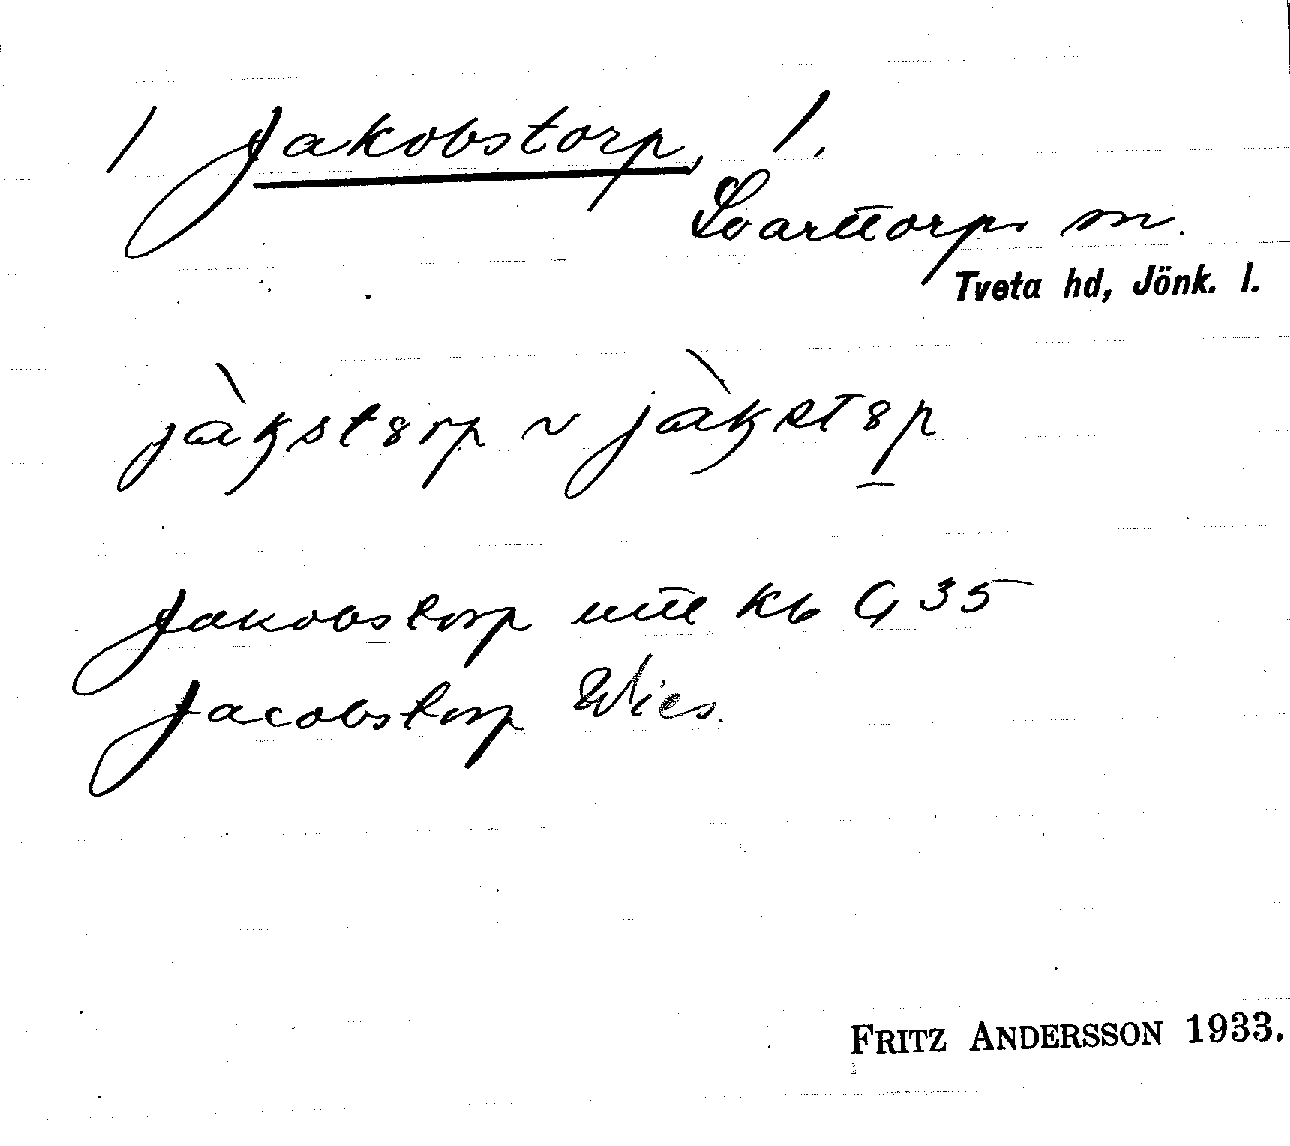 / Jakobstorp, 1.
Svarttorps sn.
Tveta hd, Jönk. l.
jàkstorp ~ jàkstop
Jakobstorp kb C, 35
Jacobstorp Wies.
FRITZ ANDERSSON 1933.